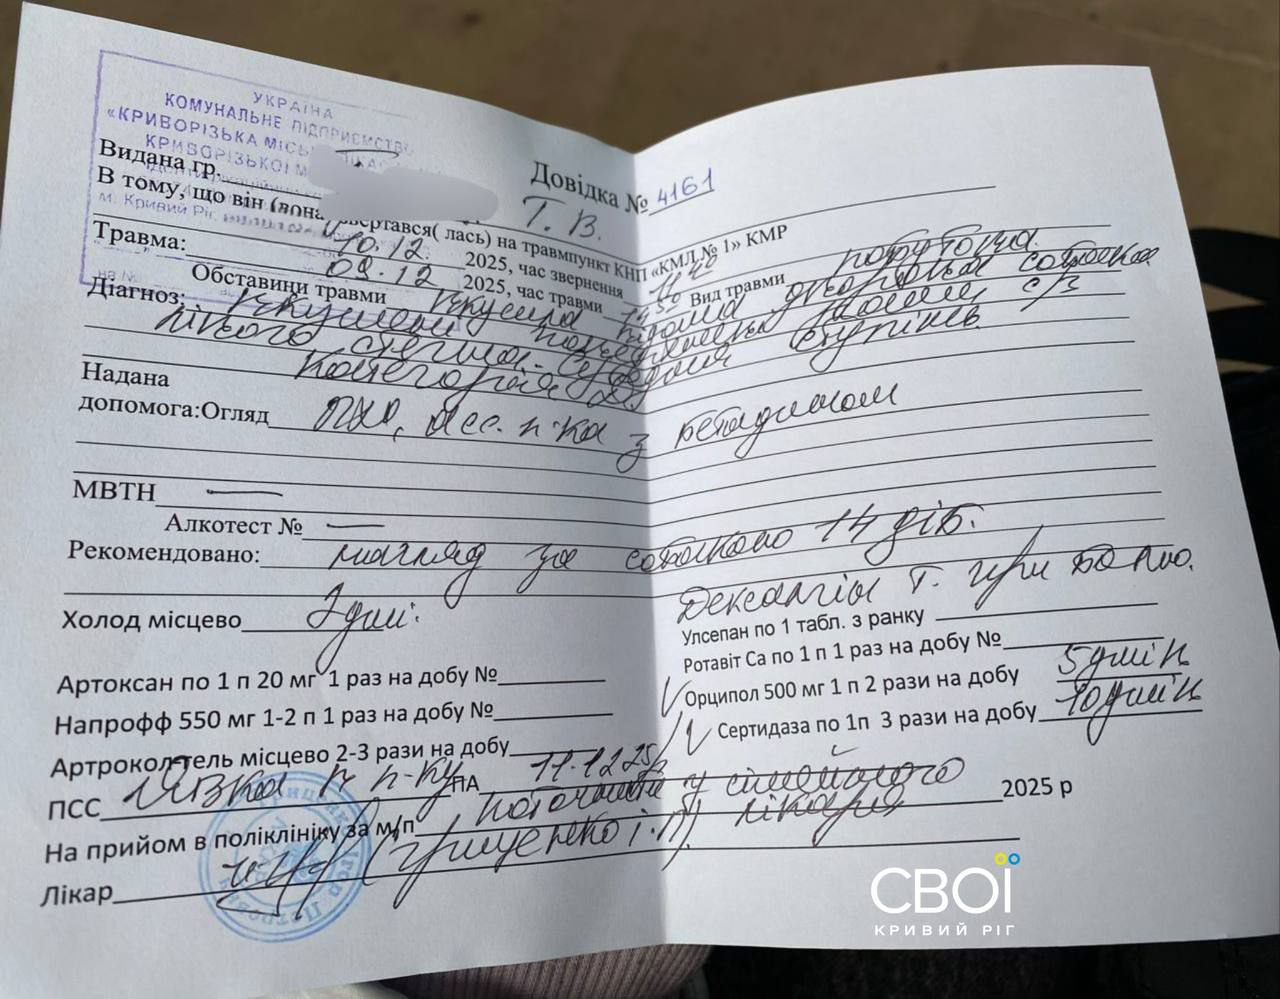 УКРАЇНА
КОМУНАЛЬНЕ ПІДПРИЄМСТВО
«КРИВОРІЗЬКА МІСЬ
КРИВОРІЗЬКОЇ М
м. Кривий Ріг
Довідка № 4161
Видана гр. Т. В.
В тому, що він (вона) звертався( лась) на травмпункт КНП «КМЛ № 1» КМР
10.12. 2025, час звернення 11 40
Травма: 09.12 2025, час травми Вид травми побутова
Обставини травми Вкусила відома домашня собака
Діагноз: Укушені
лівого стегна. Середня ступінь
Категорія
Надана
допомога:Огляд ПХО, ас. п-ка з бетадином
МВТН —
Алкотест № —
Рекомендовано: нагляд за собакою 14 діб.
Холод місцево дні.
Дексалгін т. при болю.
Улсепан по 1 табл. з ранку
Ротавіт Са по 1 п 1 раз на добу №
Артоксан по 1 п 20 мг 1 раз на добу №
Орципол 500 мг 1 п 2 рази на добу 5 днів
Напрофф 550 мг 1-2 п 1 раз на добу №
Сертидаза по 1п 3 рази на добу 10 днів
Артроколтель місцево 2-3 рази на добу
ПСС ПА 11.12.25р
На прийом в поліклініку за м/п у сімейного лікаря 2025 р
Лікар (Грищенко І.П)
СВОЇ
КРИВИЙ РІГ